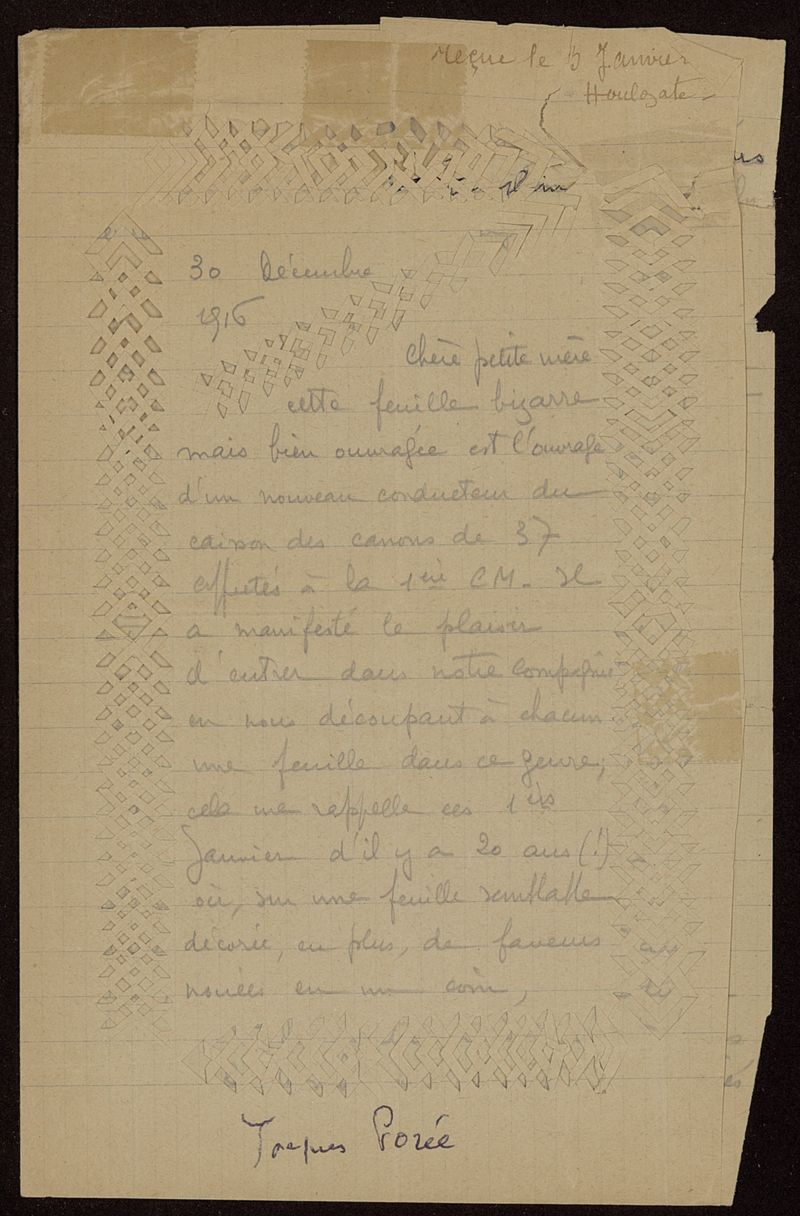 reçue le 5 Janvier
Houlgate
30 Décembre
1916
Chère petite mère
cette feuille bizarre
mais bien ouvragée est l'ouvrage
d'un nouveau conducteur du
caisson des canons de 37
affectés à la 1ère CM. Il
a manifesté le plaisir
d'entrer dans notre compagnie
en nous découpant à chacun
une feuille dans ce genre;
cela me rappelle ces 1ers
Janvier d'il y a 20 ans (!)
où, sur une feuille semblable
décorée, en plus, de faveurs
nouées en un coin,
Jacques Porée